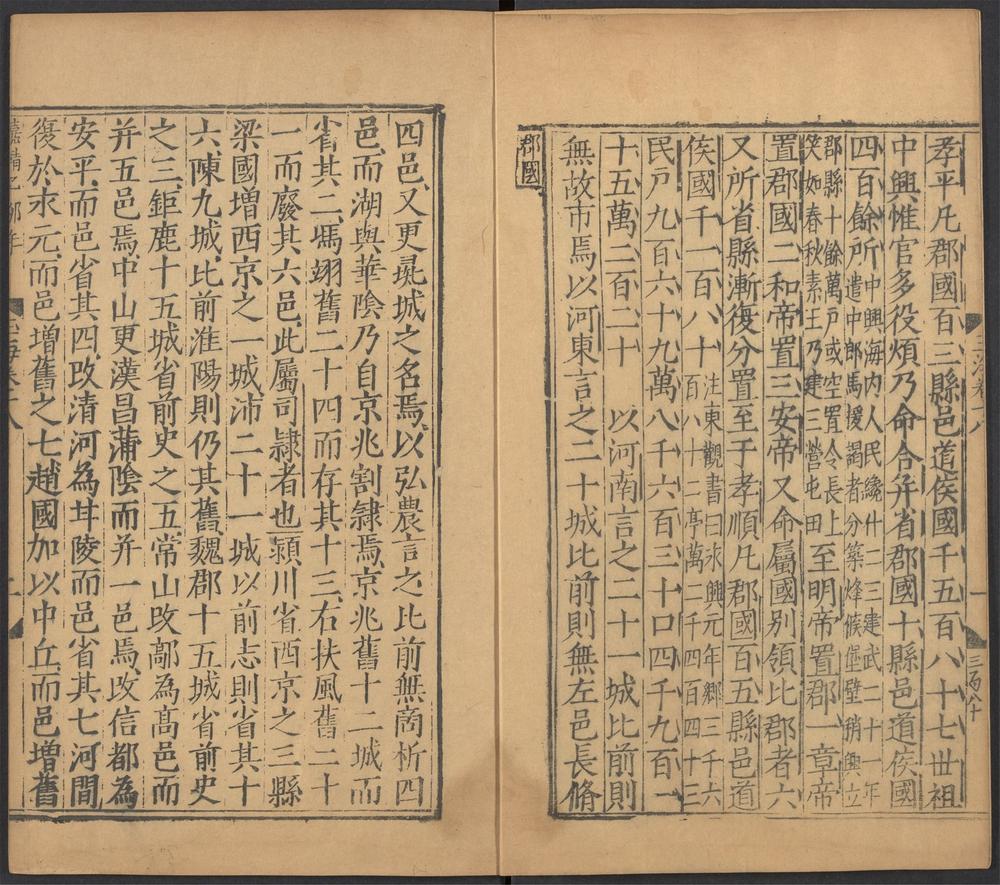 孝平凡郡國百三縣邑道侯國千五百八十七世祖
中興惟官多役煩乃命合并省郡國十縣邑道侯國
四百餘所中興海内人民纔什二三建武二十一年
遣中郎馬援謁者分築烽候堡壁稍興立
郡縣十餘萬戶或空置令長上
笑如春秋素王乃建三營屯田至明帝置郡一章帝
置郡國二和帝置三安帝又命屬國别領比郡者六
又所省縣漸復分置至于孝順凡郡國百五縣邑道
侯國千一百八十注東觀書曰永興元年鄉三千六
百八十二亭萬二千四百四十三
民戸九百六十九萬八千六百三十口四千九百一
十五萬二百二十 以河南言之二十一城比前則
無故市焉以河東言之二十城比前則無左邑長脩
郡國
四邑又更彘城之名焉以弘農言之比前無商析四
邑而湖與華陰乃自京兆割隸焉京兆舊十二城而
省其二馮翊舊二十四而存其十三右扶風舊二十
一而廢其六邑此屬司隸者也潁川省西京之三縣
梁國増西京之一城沛二十一城以前志則省其十
六陳九城比前淮陽則仍其舊魏郡十五城省前史
之三鉅鹿十五城省前史之五常山改鄗為高邑而
并五邑焉中山更漢昌蒲陰而并一邑焉改信都為
安平而邑省其四改清河為甘陵而邑省其七河間
復於永元而邑増舊之七趙國加以中丘而邑増舊
嘉靖乙卯年